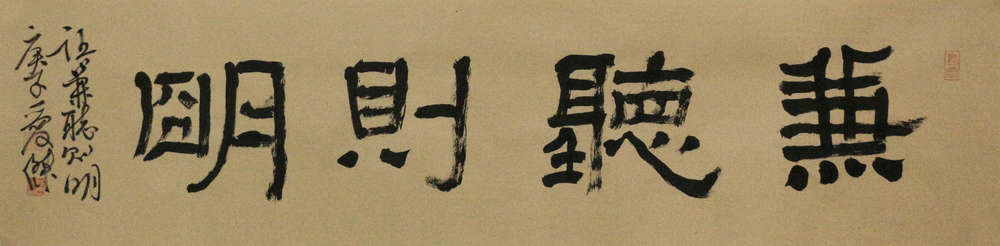 兼聽則明
注兼聽則明
庚子